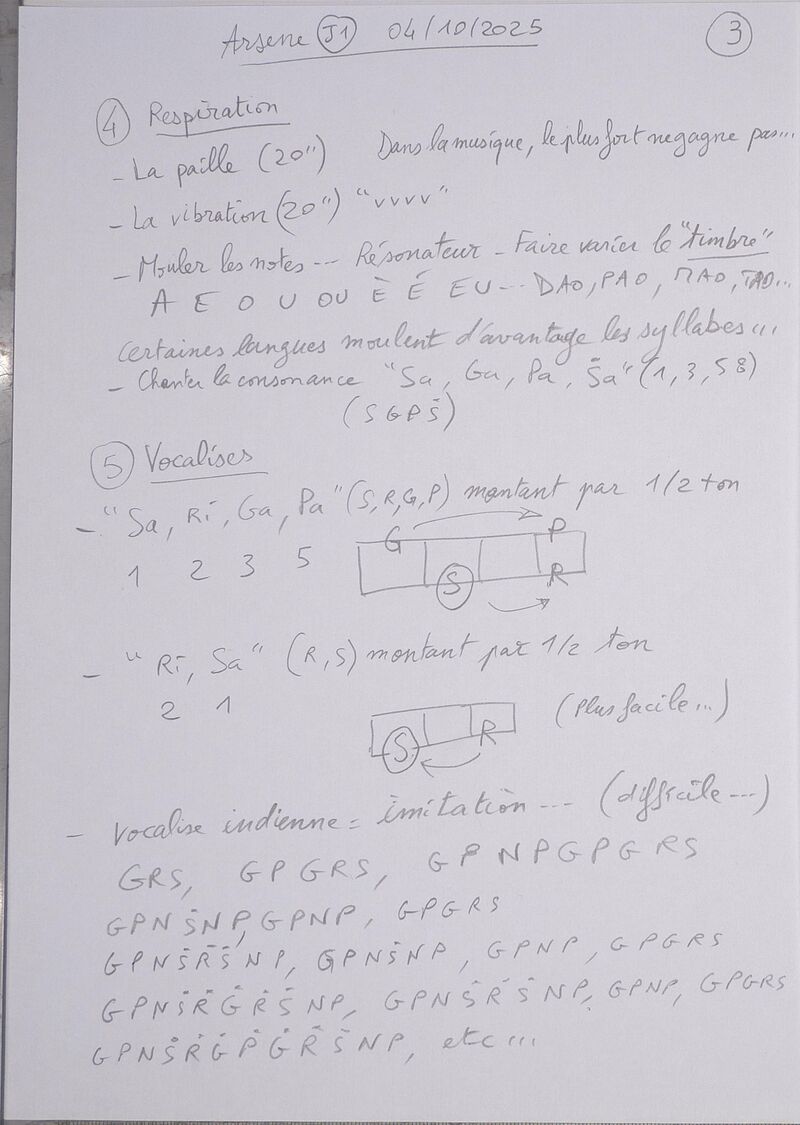 Arsene J1 04/10/2025 3
4 Respiration
- La paille (20") Dans la musique, le plus fort ne gagne pas...
- La vibration (20") "vvvv"
- Mouler les notes... Résonateur - Faire varier le "timbre"
A E O U OU È É EU... DAO, PAO, MAO, TAO...
Certaines langues moulent d'avantage les syllabes...
- Chanter la consonance "Sa, Ga, Pa, Ṡa" (1, 3, 5 8)
(S G P Ṡ)
5 Vocalises
- "Sa, Ri, Ga, Pa" (S, R, G, P) montant par 1/2 ton
1 2 3 5
G P
S R
- "Ri, Sa" (R, S) montant par 1/2 ton
2 1
(Plus facile...)
S R
- Vocalise indienne = imitation... (difficile...)
GRS, GPGRS, GPNPGPGRS
GPNṠNP, GPNP, GPGRS
GPNṠṘṠNP, GPNṠNP, GPNP, GPGRS
GPNṠṘĠṘṠNP, GPNṠṘṠNP, GPNP, GPGRS
GPNṠṘĠṖĠṘṠNP, etc...